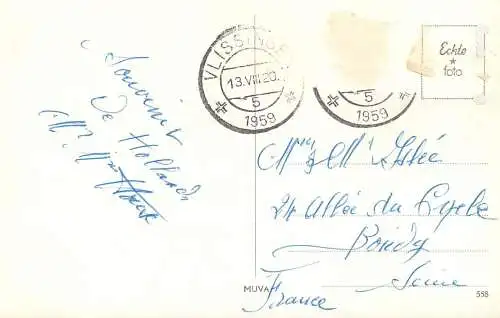 Souvenir
De Hollande
VLISSINGEN
13.VIII.20.
5
1959
5
1959
Echte
foto
& Mme
24 Allée du Cycle
Bondy
Seine
France
MUVA
558